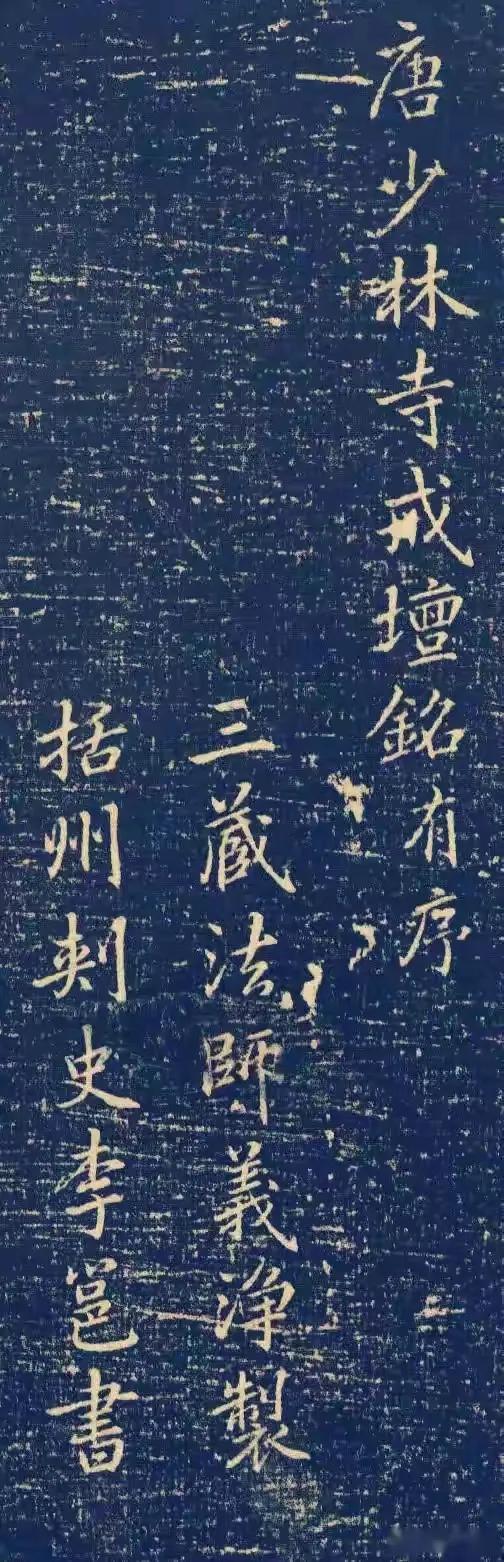 唐少林寺戒壇銘有序
三蔵法師義淨製
括州刺史李邕書